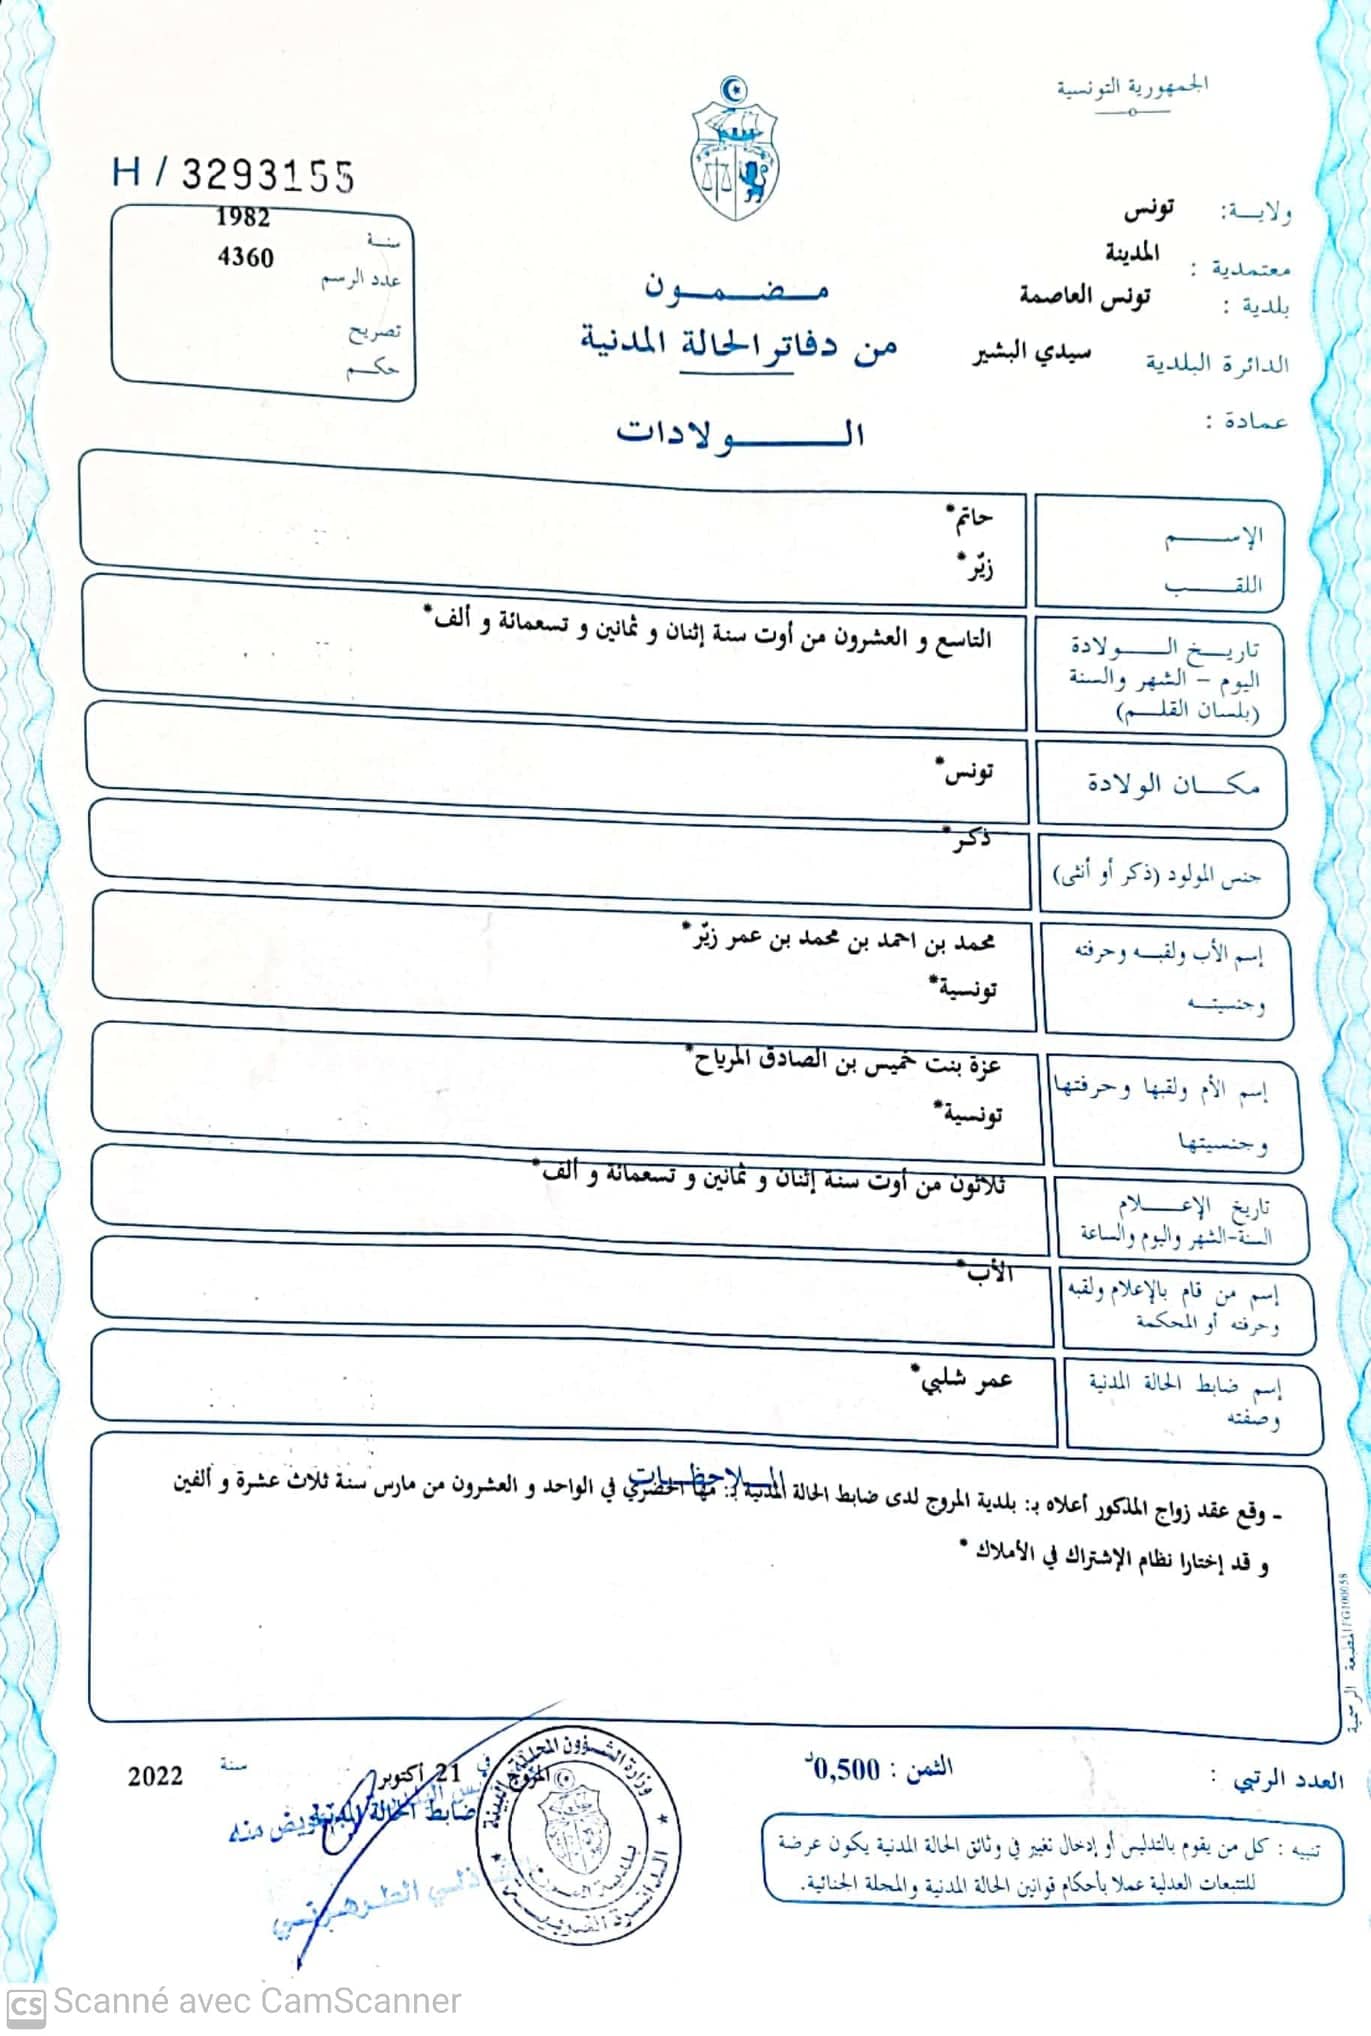 الجمهورية التونسية
H / 3293155
سنة 1982
عدد الرسم 4360
تصريح
حكم
ولاية: تونس
معتمدية : المدينة
بلدية : تونس العاصمة
الدائرة البلدية سيدي البشير
عمادة :
مضمون
من دفاتر الحالة المدنية
الولادات
الإسم حاتم*
اللقب زيّر*
تاريخ الولادة
اليوم - الشهر والسنة
(بلسان القلم)
التاسع و العشرون من أوت سنة إثنان و ثمانين و تسعمائة و ألف*
مكان الولادة تونس*
جنس المولود (ذكر أو أنثى) ذكر*
إسم الأب ولقبه وحرفته
وجنسيته
محمد بن احمد بن محمد بن عمر زيّر*
تونسية*
إسم الأم ولقبها وحرفتها
وجنسيتها
عزة بنت خميس بن الصادق المرياح*
تونسية*
تاريخ الإعلام
السنة-الشهر واليوم والساعة
ثلاثون من أوت سنة إثنان و ثمانين و تسعمائة و ألف*
إسم من قام بالإعلام ولقبه
وحرفته أو المحكمة
الأب*
إسم ضابط الحالة المدنية
وصفته
عمر شلبي*
الملاحظات
- وقع عقد زواج المذكور أعلاه بـ: بلدية المروج لدى ضابط الحالة المدنية بـ: مها الخضري في الواحد و العشرون من مارس سنة ثلاث عشرة و ألفين
و قد إختارا نظام الإشتراك في الأملاك *
المطبعة الرسمية
العدد الرتبي :
الثمن : 0,500د
المروج في 21 أكتوبر سنة 2022
ضابط الحالة المدنية
بتفويض منه
وزارة الشؤون المحلية والبيئة
تنبيه : كل من يقوم بالتدليس أو إدخال تغيير في وثائق الحالة المدنية يكون عرضة
للتتبعات العدلية عملا بأحكام قوانين الحالة المدنية والمجلة الجنائية.
CS Scanné avec CamScanner